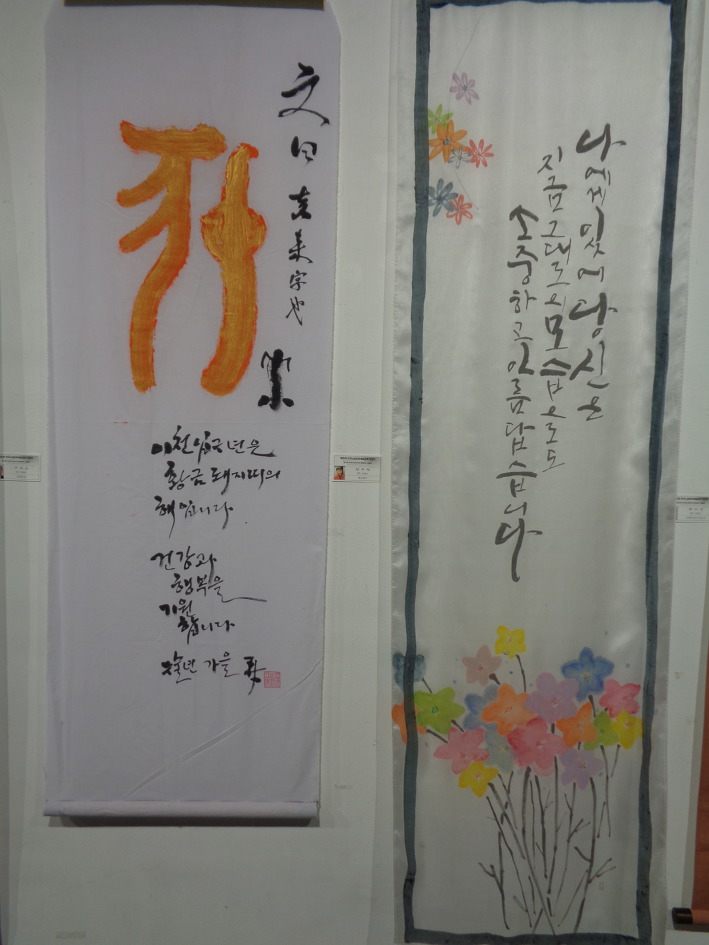 文曰
字也
이천십구년은
황금돼지띠의
해입니다
건강과
행복을
기원
합니다
가을
나에게 있어 당신은
지금 그대로의 모습으로도
소중하고 아름답습니다